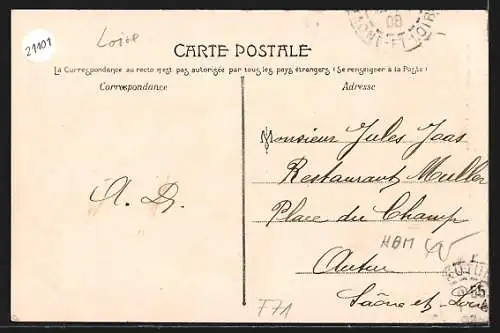 21101
Loire
08
CARTE POSTALE
La Correspondance au recto n'est pas autorisée par tous les pays étrangers (Se renseigner à la Poste)
Correspondance
Adresse
Monsieur Jules Jaas
Restaurant Muller
A. D.
Place du Champ
HBM
Autun
F71
Saône et Loire